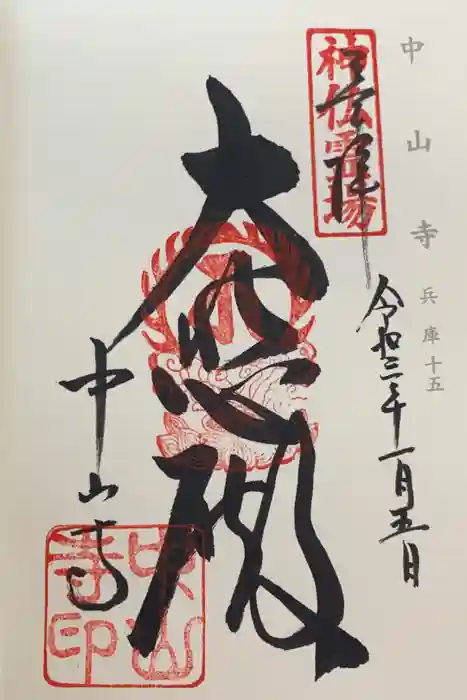 中山寺 兵庫十五
神仏霊場
奉拝
令和三年一月五日
大悲殿
中山寺
中山寺印